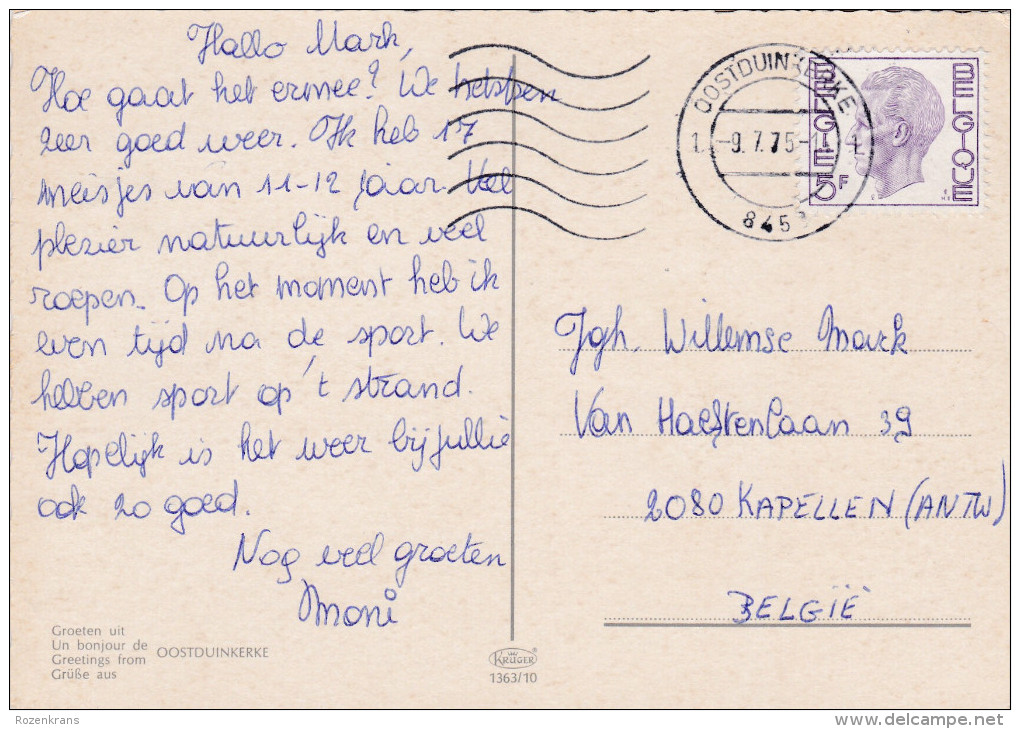 Hallo Mark,
Hoe gaat het ermee? We hebben
zeer goed weer. Ik heb 17
meisjes van 11-12 jaar. Veel
plezier natuurlijk en veel
roepen. Op het moment heb ik
even tijd na de sport. We
hebben sport op 't strand.
Hopelijk is het weer bij jullie
ook zo goed.
Nog veel groeten
Moni
Groeten uit
Un bonjour de
Greetings from
Grüße aus
OOSTDUINKERKE
KRUGER
1363/10
OOSTDUINKERKE
-9.7.75-
845
BELGIE
BELGIQUE
5F
Jgh. Willemse Mark
Van Haeftenlaan 39
2080 KAPELLEN (ANTW)
BELGIË
Rozenkrans
www.delcampe.net